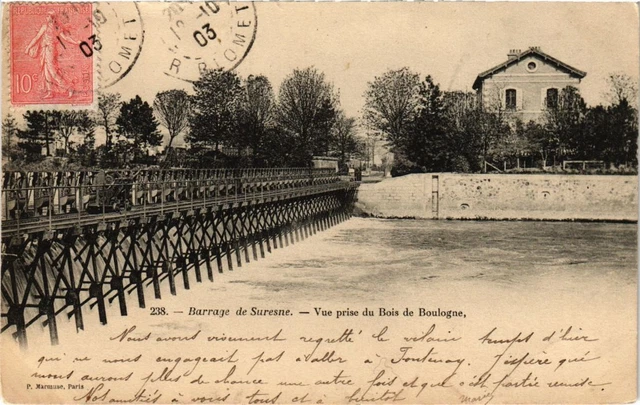 10c
10
03
10
03
238. — Barrage de Suresne. — Vue prise du Bois de Boulogne,
Nous avons vivement regretté le vilain temps d'hier
qui ne nous engageait pas d'aller à Fontenay. J'espère que
nous aurons plus de chance une autre fois et que c'est partie remise.
P. Marmuse, Paris
à vous tous et à bientôt